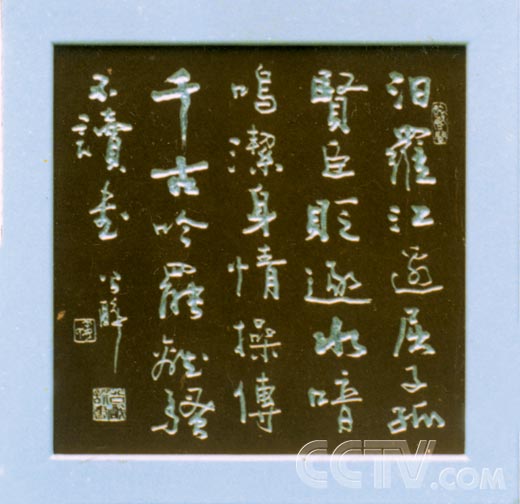 汨羅江邊屈子孤
賢臣貶逐水喑
嗚潔身情操傳
千古吟罷離騷
不讀書
CCTV.com